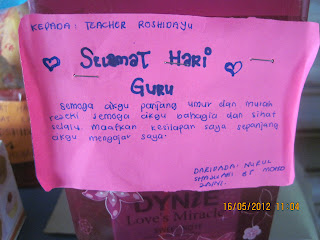 KEPADA : TEACHER ROSHIDAYU
SELAMAT HARI
GURU
Semoga cikgu panjang umur dan murah
rezeki semoga cikgu bahagia dan sihat
selalu. Maafkan kesilapan saya sepanjang
cikgu mengajar saya.
DARIPADA: NURUL
BT MOHD
DYNIE
Love's Miracle
16/05/2012 11:04